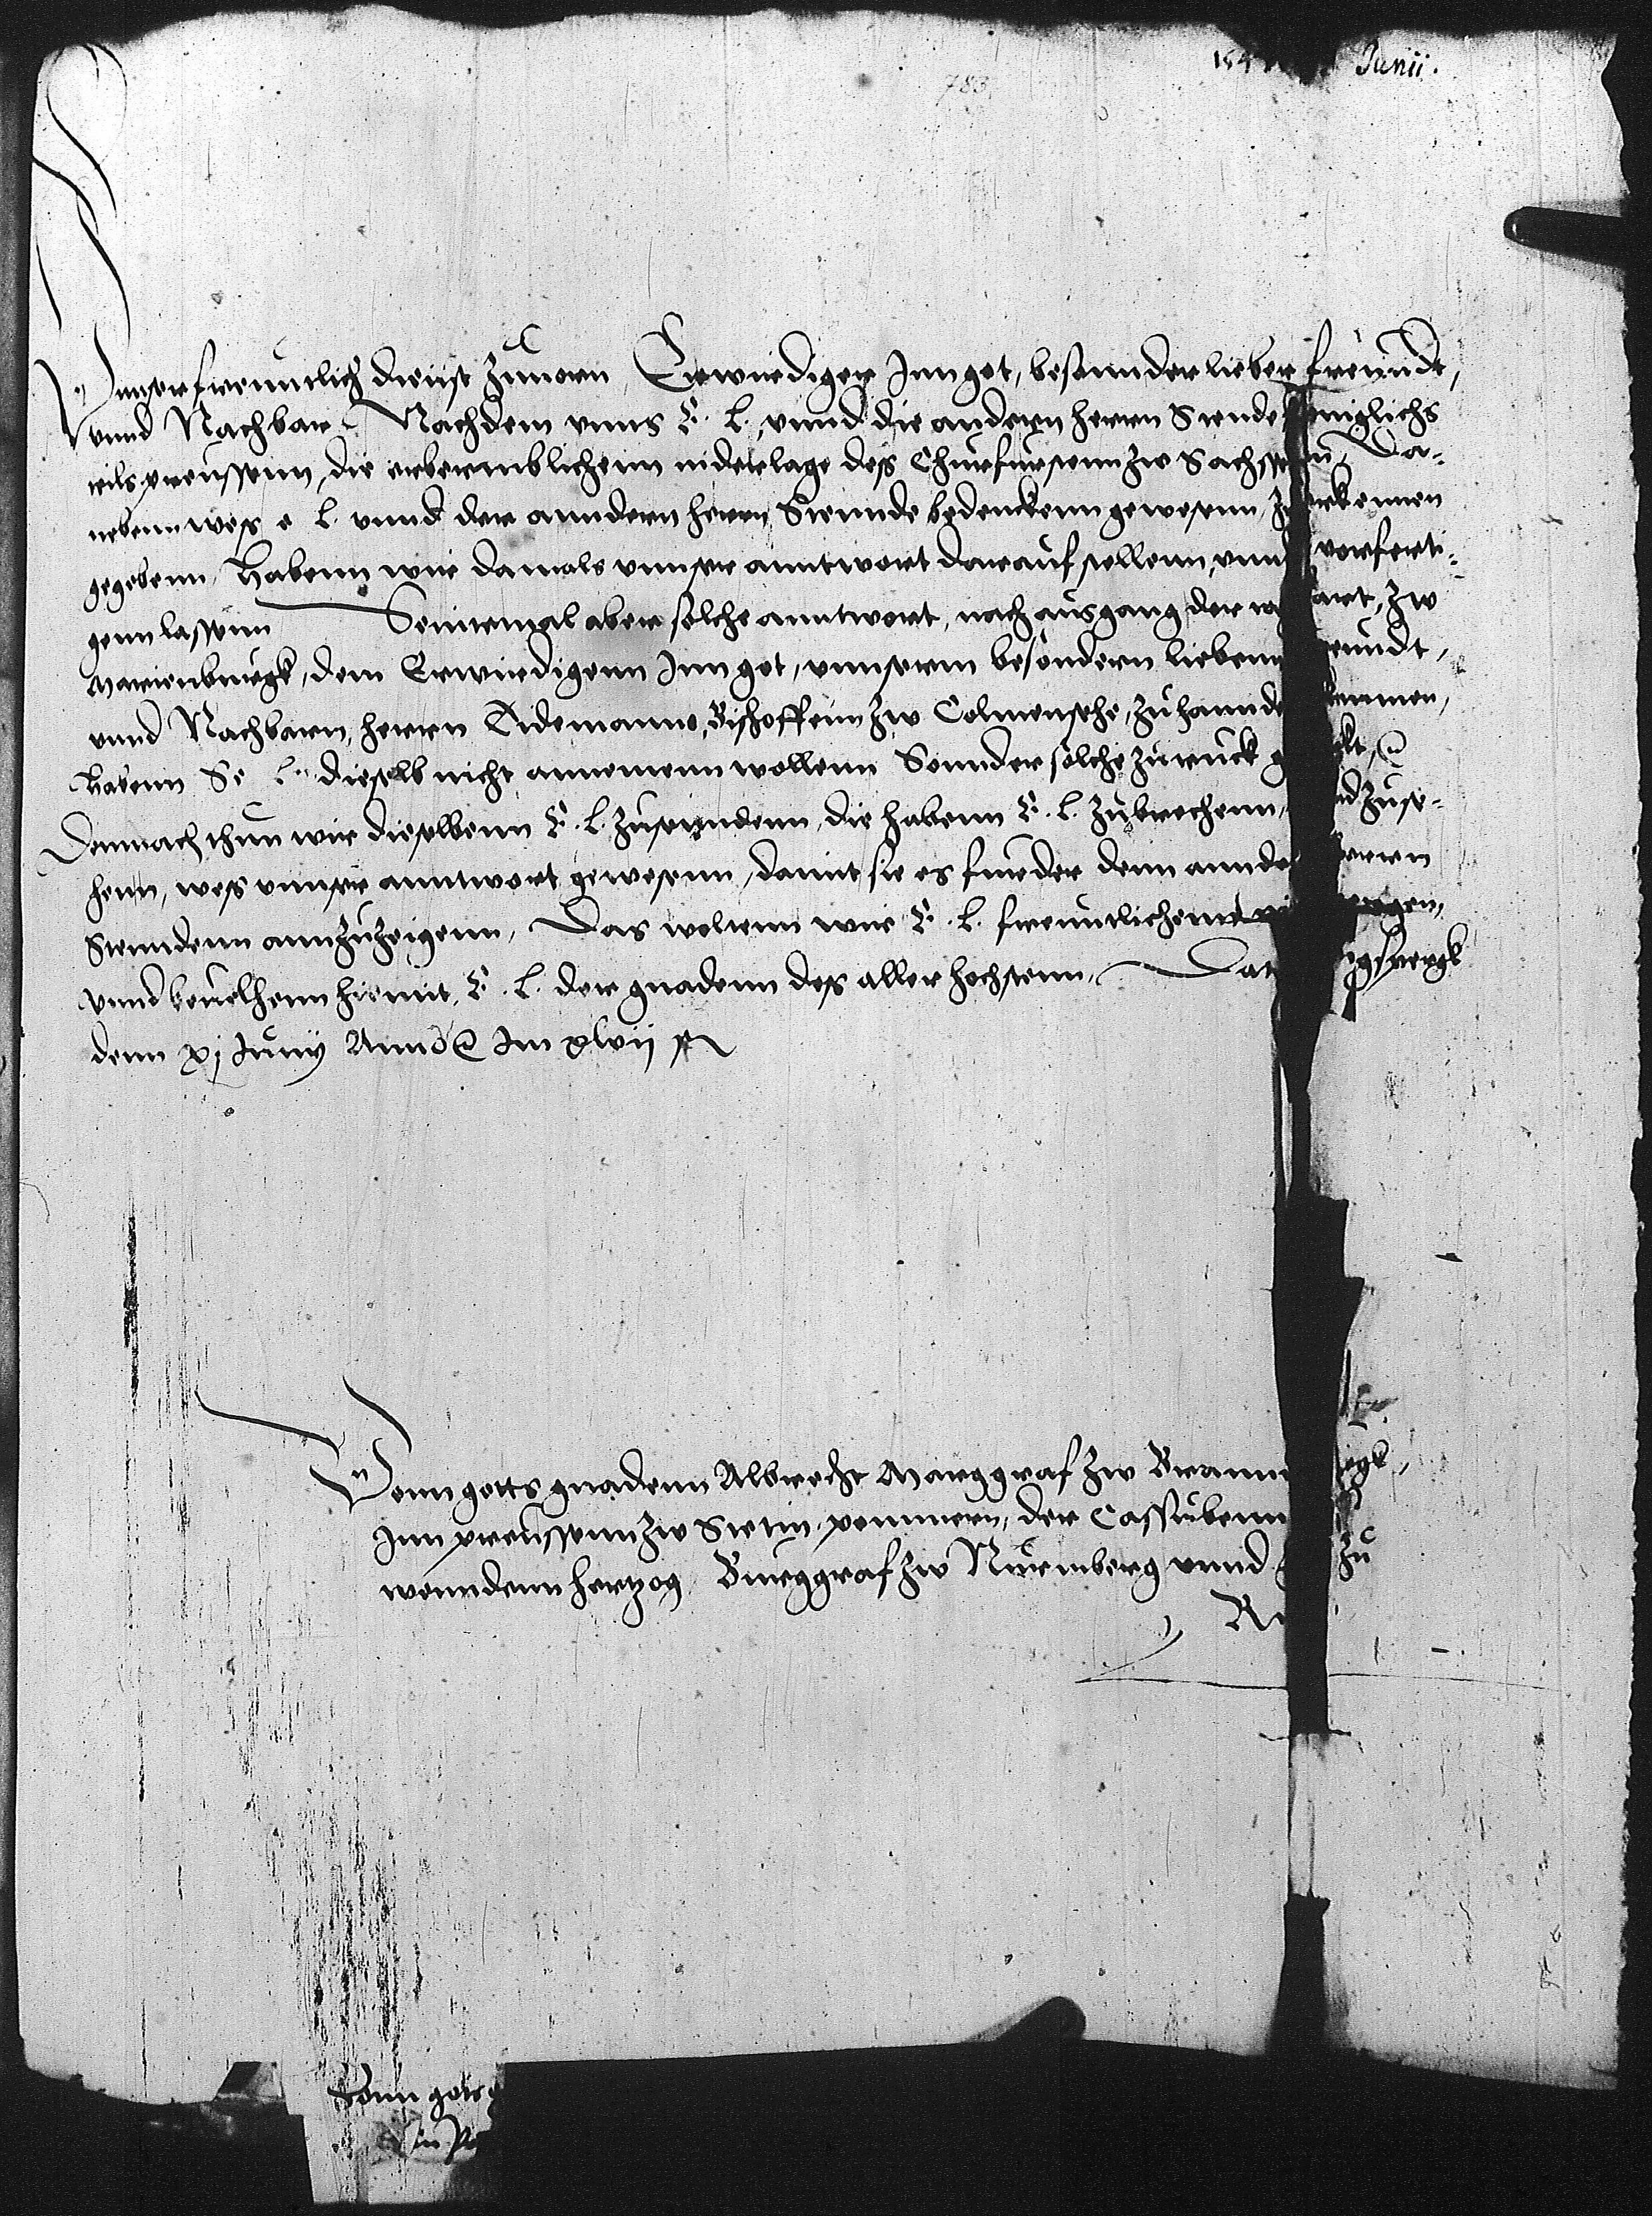 154 Junii.
783
Vnnser freuntlich dienst zuuorn, Erwirdiger Inn got, besunder lieber freundt,
vnnd Nachbar. Nachdem vnns E. L. vnnd die andern herrn Stende koniglichs
teils preussenn, die erbermblichenn niderlage des Churfurstenn zw Sachssenn, Da-
nebenn wes e L. vnnd der anndern herrn Stennde bedenckenn gewesenn, zuerkennen
gegebenn, Habenn wir damals vnnser anntwort darauf stellenn, vnnd vorferti-
genn lassenn Seintemal aber solche anntwort, nach ausgang der art, zw
Marienburgk, dem Erwirdigenn Inn got, vnnserm besondern liebenn freundt,
vnnd Nachbarn, herrn Tidemanno, Bischoffenn zw Colmensehe, zu hannden kommen,
Habenn Se L. dieselb nicht annemenn wollenn Sonnder solche zuruck
Demnach thun wir dieselbenn E. L. zusenndenn, die habenn E. L. zubrechenn, vnd zuse-
henn, wes vnnser anntwort gewesenn, damit sie es furder denn anndern herrn
Stenndenn annzuzeigenn, Das woltenn wir E. L. freuntlichenn
vnnd beuelhenn hiemit E. L. der gnadenn des aller hochstenn, Dat Konigspergk
denn xj Junij Anno Im xlvij
Vonn gotts gnadenn Albrecht Marggraf zw Branndenburgk,
Inn preussenn zw Stetin, pommern, der Cassubenn
wenndenn hertzog, Burggraf zw Nurmberg vnnd zu
Ru
Vonn gots
in Pr